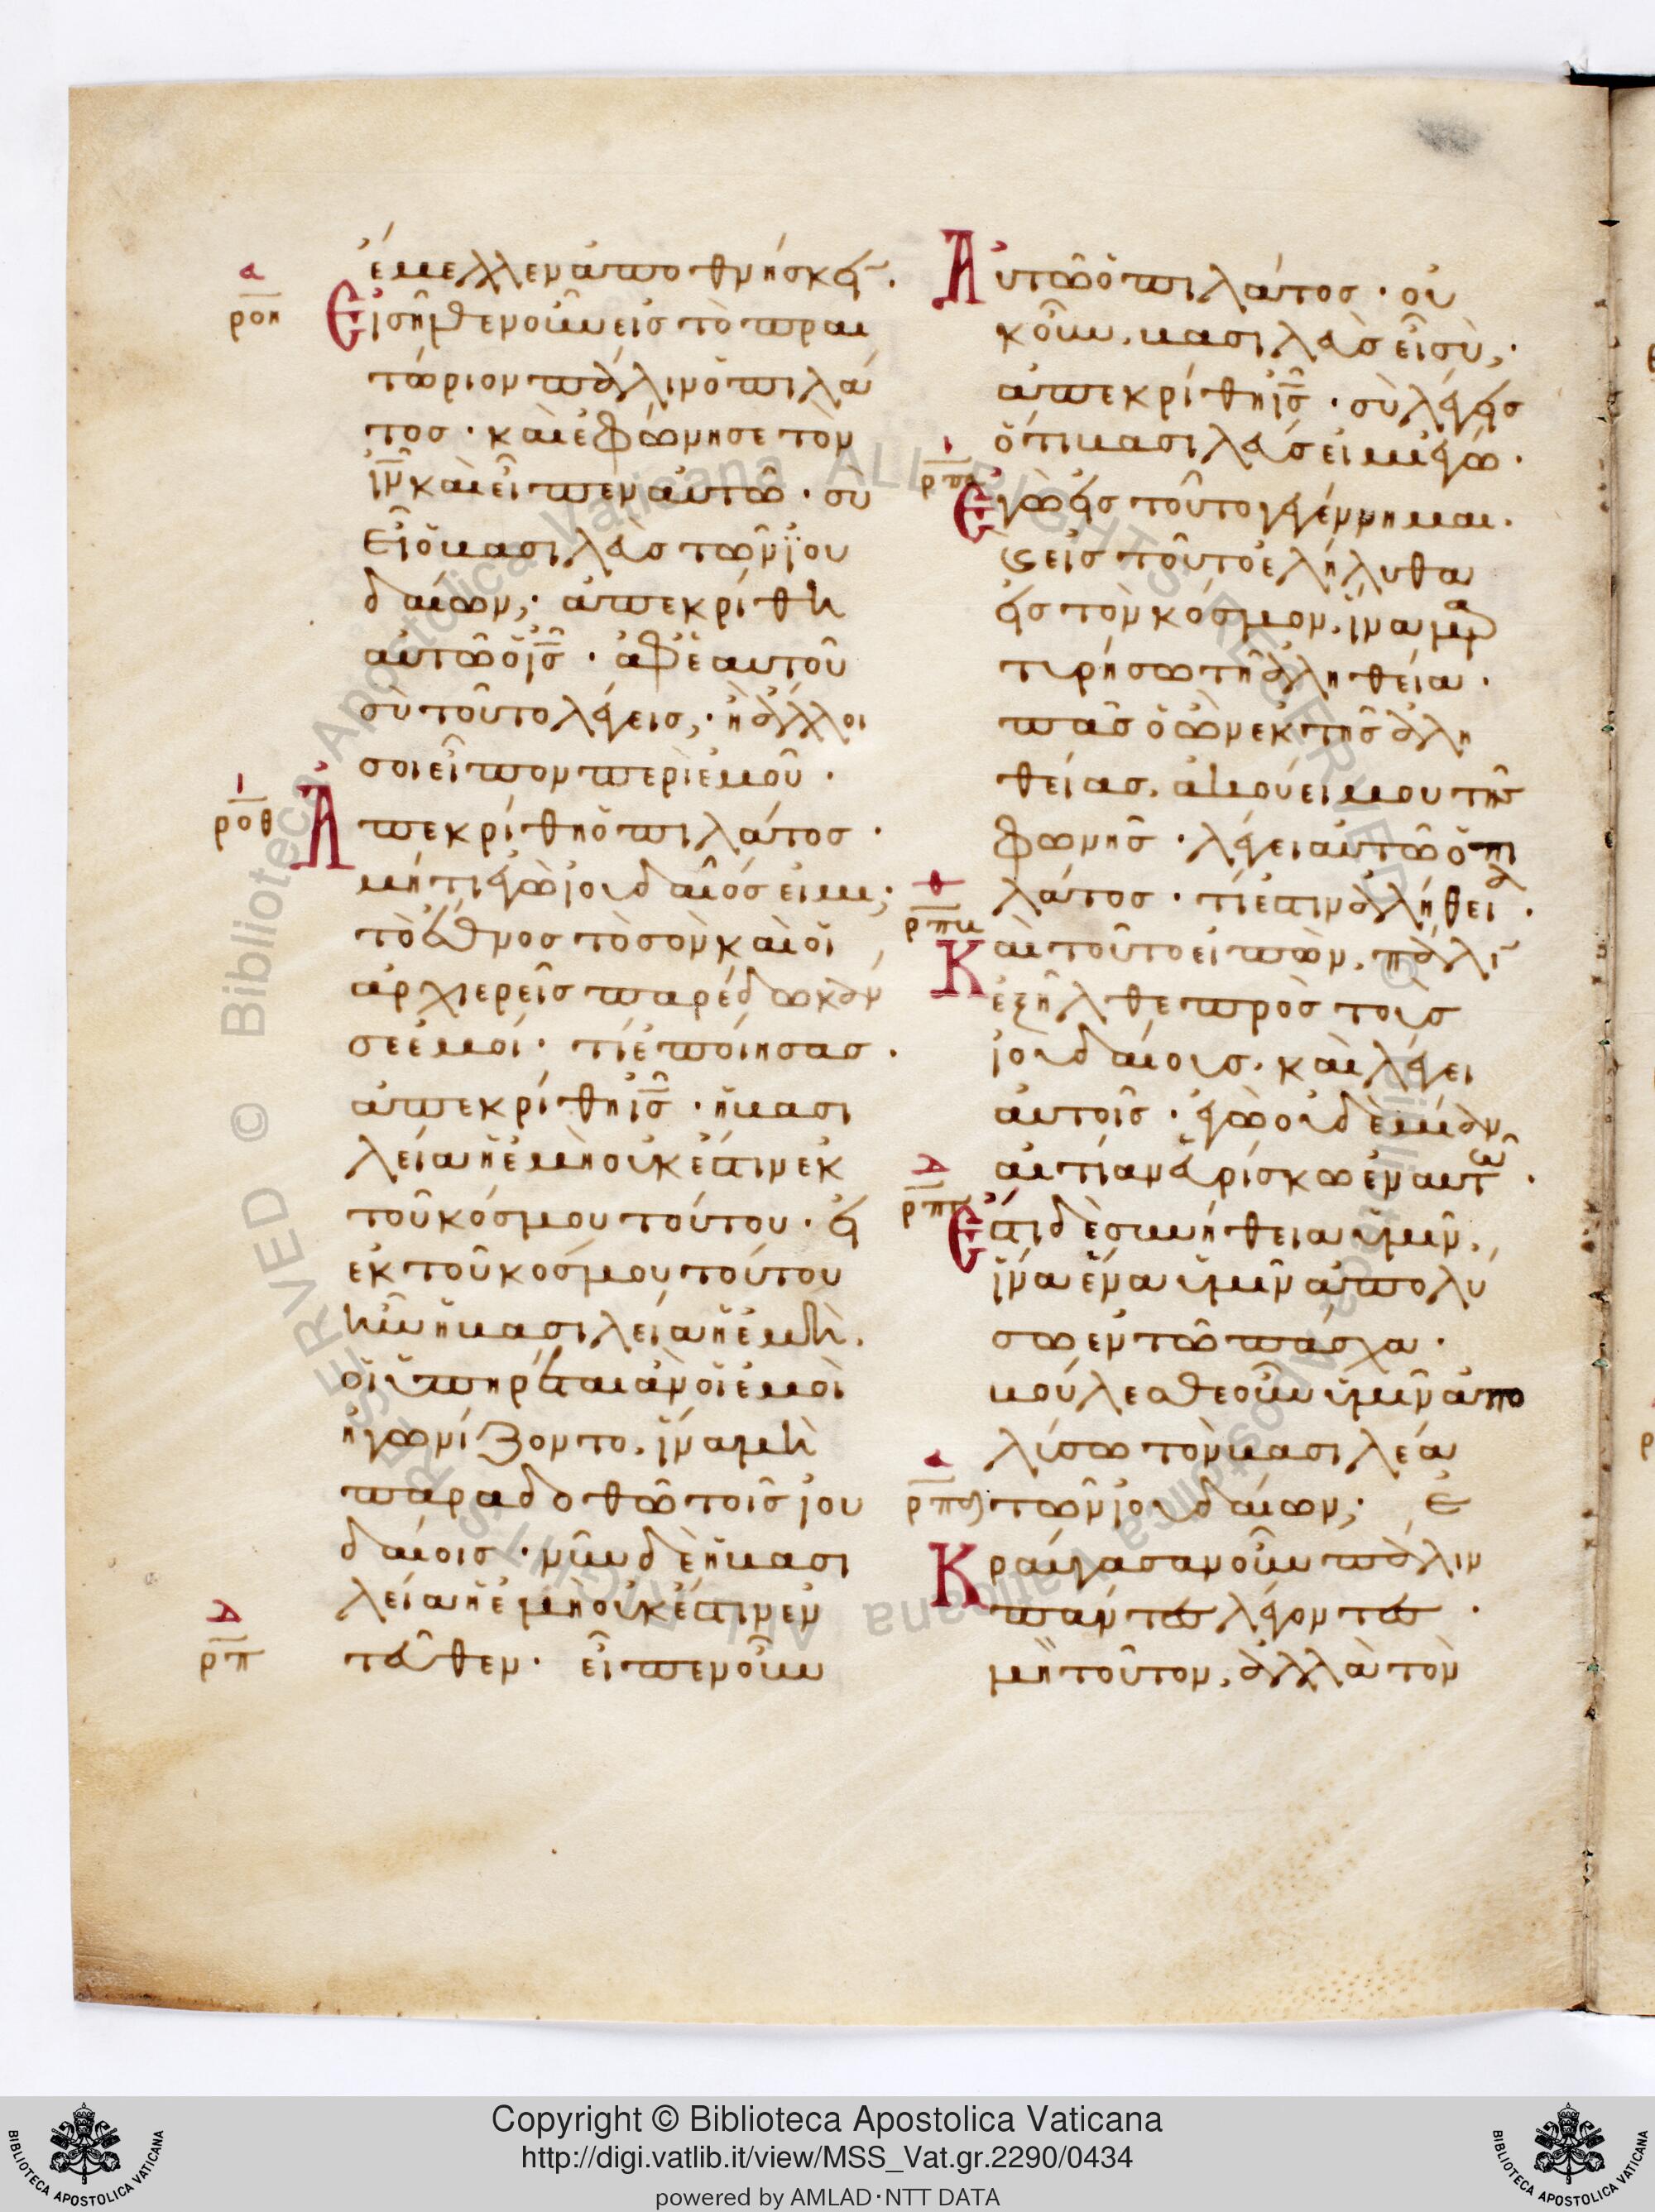 α
ροη
ἔμελλεν ἀποθνήσκειν.
Εἰσῆλθεν οὖν εἰς τὸ πραι
τώριον πάλιν ὁ πιλά
τος · καὶ ἐφώνησε τὸν
ἰν̅ καὶ εἶπεν αὐτῶ · σὺ
εἶ ὁ βασιλεὺς τῶν ἰου
δαίων; ἀπεκρίθη
αὐτῶ ὁ ἰς̅ · ἀφ' ἑαυτοῦ
σὺ τοῦτο λέγεις; ἢ ἄλλοι
σοι εἶπον περὶ ἐμοῦ ·
ι
ροθ
Ἀπεκρίθη ὁ πιλάτος ·
μήτι ἐγὼ ἰουδαῖός εἰμι;
τὸ ἔθνος τὸ σὸν καὶ οἱ
ἀρχιερεῖς παρέδωκάν
σε ἐμοί · τί ἐποίησας .
ἀπεκρίθη ἰς̅ · ἡ βασι
λεία ἡ ἐμὴ οὐκ ἔστιν ἐκ
τοῦ κόσμου τούτου · εἰ
ἐκ τοῦ κόσμου τούτου
ἦν ἡ βασιλεία ἡ ἐμὴ.
οἱ ὑπηρέται ἂν οἱ ἐμοὶ
ἠγωνίζοντο, ἵνα μὴ
παραδοθῶ τοῖς ἰου
δαίοις · νῦν δὲ ἡ βασι
λεία ἡ ἐμὴ οὐκ ἔστιν ἐν
δ
ρπ
τεῦθεν · εἶπεν οὖν
Αὐτῶ ὁ πιλάτος · οὐ
κοῦν, βασιλεὺς εἶ σὺ;
ἀπεκρίθη ἰς̅ · σὺ λέγεις
ὅτι βασιλεύς εἰμι ἐγώ ·
ι
ρπα
Ἐγὼ εἰς τοῦτο γεγέννημαι.
ϛ εἰς τοῦτο ἐλήλυθα
εἰς τὸν κόσμον, ἵνα μαρ
τυρήσω τῆ ἀληθεία ·
πᾶς ὁ ὢν ἐκ τῆς ἀλη
θείας, ἀκούει μου τῆς
φωνῆς · λέγει αὐτῶ ὁ πι
λάτος · τί ἐστιν ἀλήθεια ·
θ
ρπβ
Καὶ τοῦτο εἰπὼν, πάλιν
ἐξῆλθε πρὸς τοὺς
ἰουδαίους, καὶ λέγει
αὐτοῖς · ἐγὼ οὐδεμίαν
αἰτίαν εὑρίσκω ἐν αὐτῶ ·
δ
ρπγ
Ἔστι δὲ συνήθεια ὑμῖν,
ἵνα ἕνα ὑμῖν ἀπολύ
σω ἐν τῶ πάσχα ·
βούλεσθε οὖν ὑμῖν ἀπο
λύσω τὸν βασιλέα
α
ρπδ
τῶν ἰουδαίων; Ἐ
Κραύγασαν οὖν πάλιν
πάντες λέγοντες ·
μὴ τοῦτον, ἀλλὰ τὸν
Copyright © Biblioteca Apostolica Vaticana
http://digi.vatlib.it/view/MSS_Vat.gr.2290/0434
powered by AMLAD·NTT DATA
BIBLIOTECA APOSTOLICA VATICANA
BIBLIOTECA APOSTOLICA VATICANA